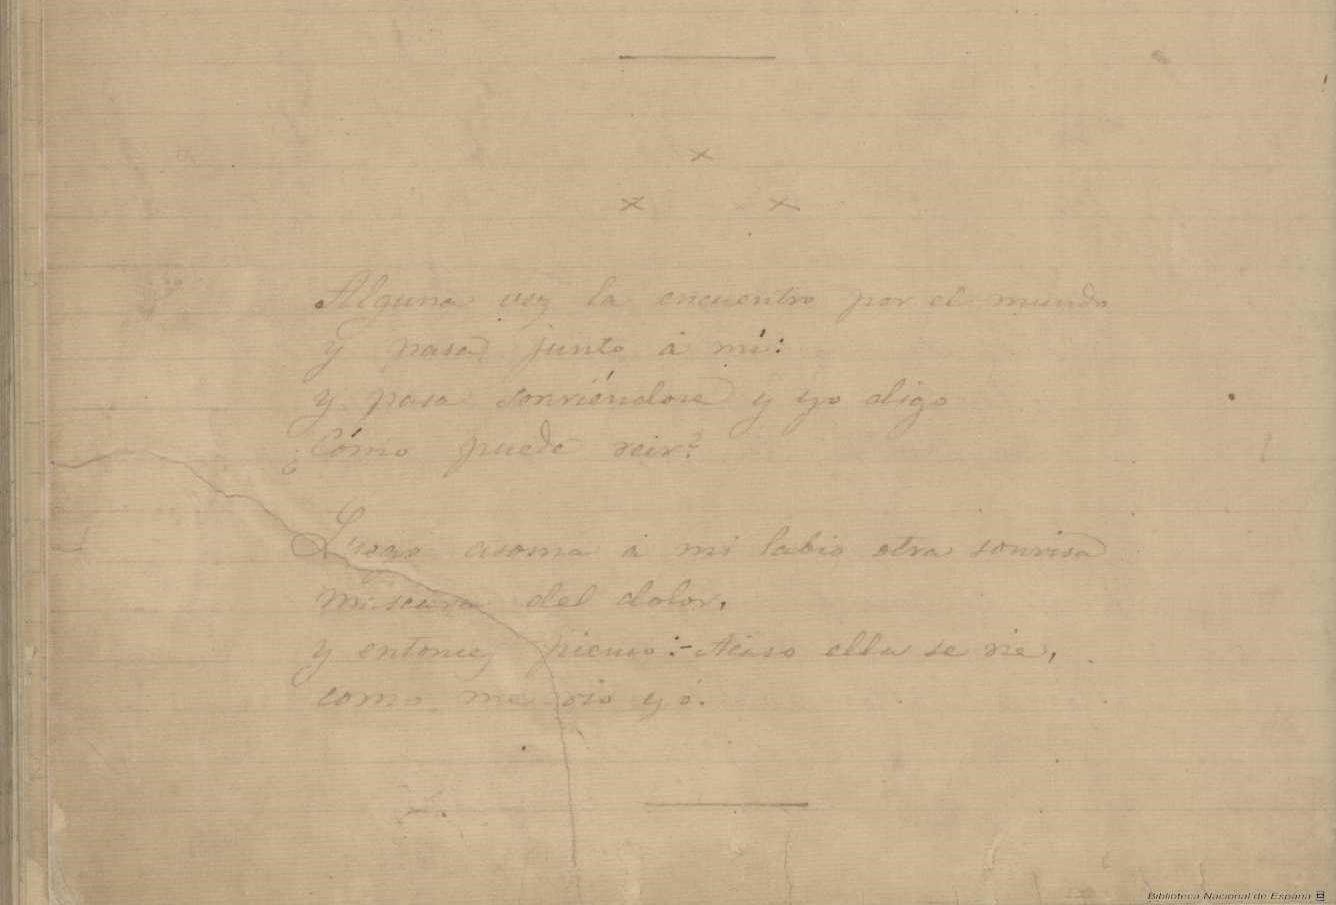 x
x x
Alguna vez la encuentro por el mundo
y pasa junto á mí:
y pasa sonriéndose y yo digo
¿Cómo puede reir?
Luego asoma á mi labio otra sonrisa
máscara del dolor,
y entonces pienso:- Acaso ella se rie,
como me rio yó.
Biblioteca Nacional de España